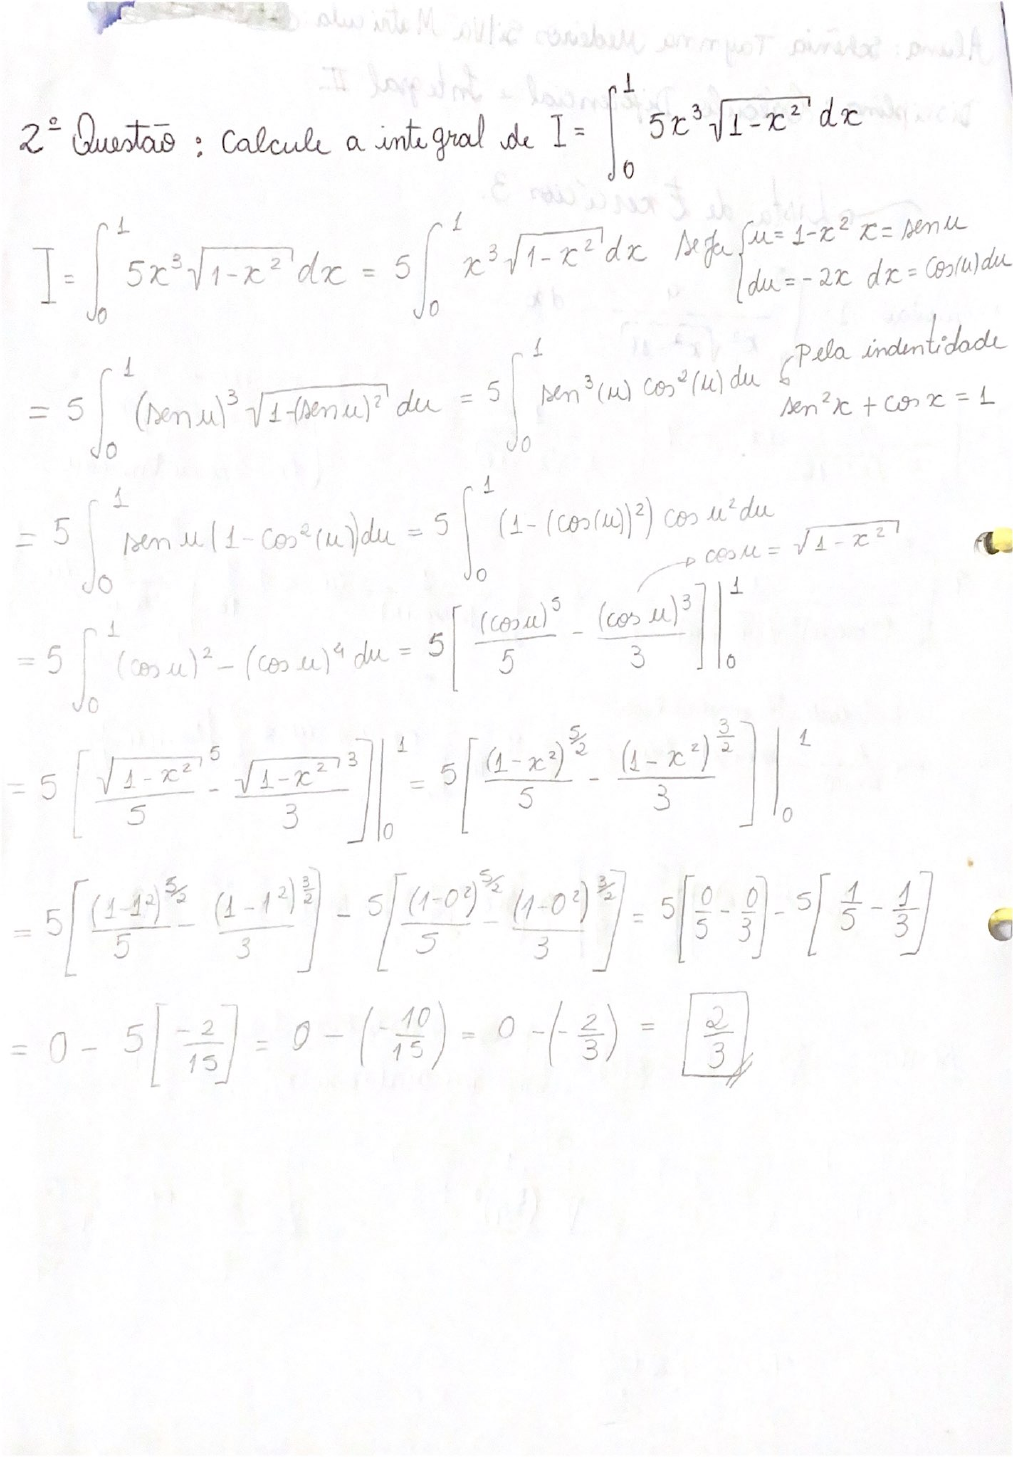 2º Questão: Calcule a integral de I = ∫₀¹ 5x³√(1-x²) dx
I = ∫₀¹ 5x³√(1-x²) dx = 5∫₀¹ x³√(1-x²) dx seja {u = 1-x² x = sen u
du = -2x dx = cos(u)du
= 5∫₀¹ (sen u)³ √(1-(sen u)²) du = 5∫₀¹ sen³(u) cos²(u) du Pela indentidade
sen²x + cos x = 1
= 5∫₀¹ sen u(1-cos²(u))du = 5∫₀¹ (1-(cos(u))²) cos u² du
cos u = √(1-x²)
= 5∫₀¹ (cos u)² - (cos u)⁴ du = 5[(cos u)⁵/5 - (cos u)³/3]|₀¹
= 5[√(1-x²)⁵/5 - √(1-x²)³/3]|₀¹ = 5[(1-x²)^(5/2)/5 - (1-x²)^(3/2)/3]|₀¹
= 5[(1-1²)^(5/2)/5 - (1-1²)^(3/2)/3] - 5[(1-0²)^(5/2)/5 - (1-0²)^(3/2)/3] = 5[0/5 - 0/3] - 5[1/5 - 1/3]
= 0 - 5[-2/15] = 0 - (-10/15) = 0 - (-2/3) = 2/3